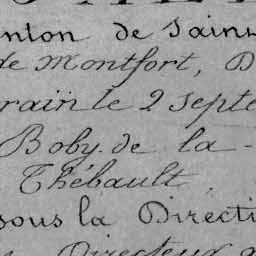 anton de Saint
de Montfort, D
rain le 2 septe
Boby de la -
Thébault.
sous la Directi
Directeur